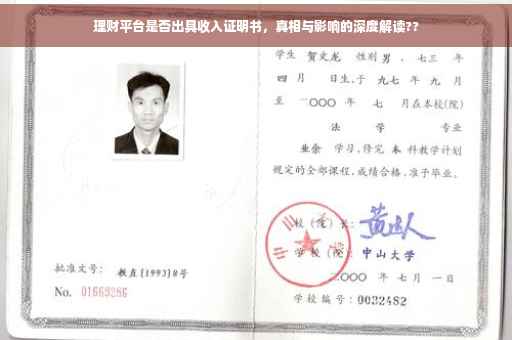 理财平台是否出具收入证明书，真相与影响的深度解读??
学生 贺文龙 性别 男 、七三 年
四 月 日生,于 九七 年 九 月
至 二000 年 七 月在本校(院)
法 学 专业
业余 学习,修完 本 科教学计划
规定的全部课程,成绩合格,准予毕业。
校 (院) 长:
学 校 (院): 中山大学
二000 年 七 月 一 日
批准文号: 教直(1993)8号
No. 01669286
学校编号: 0032482